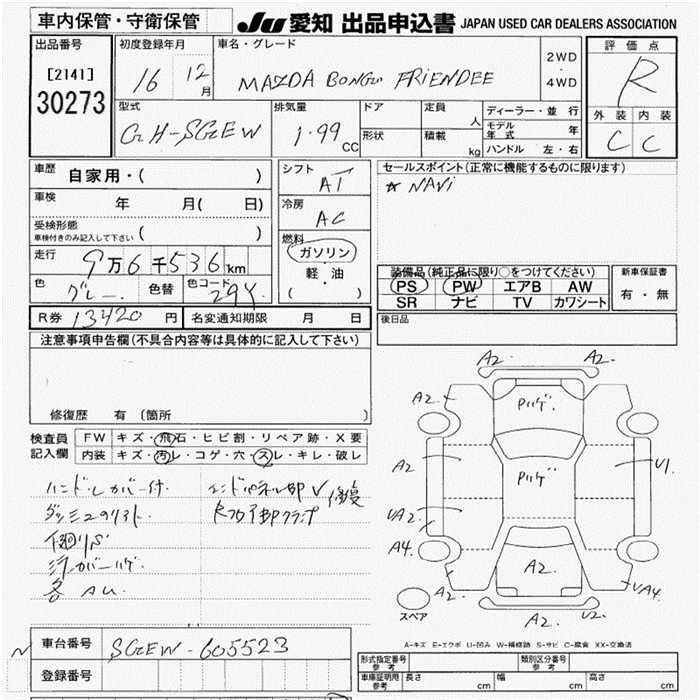 車内保管・守衛保管
JU 愛知 出品申込書 JAPAN USED CAR DEALERS ASSOCIATION
出品番号
[2141]
30273
初度登録年月
16 12月
車名・グレード
MAZDA BONGO FRIENDEE
2WD
・
4WD
評価点
R
外装 内装
C C
型式
GH-SGEW
排気量
1.99 CC
ドア
形状
定員 人
積載 kg
ディーラー・並行
モデル年式 年
ハンドル 左・右
車歴 自家用・( )
車検 年 月( 日)
受検形態
車検付きのみ記入して下さい ( )
走行 9万6千536km
色 グレー 色替 色コード 29Y
シフト
AT
冷房
AC
燃料
ガソリン
・
軽・油
( )
セールスポイント(正常に機能するものに限ります)
☆ NAVi
装備品(純正品に限り○をつけてください)
PS PW エアB AW
SR ナビ TV カワシート
新車保証書
有・無
R券 13420 円 名変通知期限 月 日
後日品
注意事項申告欄(不具合内容等は具体的に記入して下さい)
修復歴 有(箇所 )
検査員記入欄
FW キズ・飛石・ヒビ割・リペア跡・X要
内装 キズ・汚レ・コゲ・穴・スレ・キレ・破レ
ハンドルカバー付
各 AU.
A2 A2
A2 A2
Pハゲ.
A2 Pハゲ. U1.
UA2
A4. A2. UA4.
A2. U2.
スペア
A-キズ E-エクボ U-凹み W-補修跡 S-サビ C-腐食 XX-交換済
車台番号 SGEW-605523
登録番号
形式指定番号参考 類別区分番号参考
車庫証明用参考 長さ cm 幅 cm 高さ cm